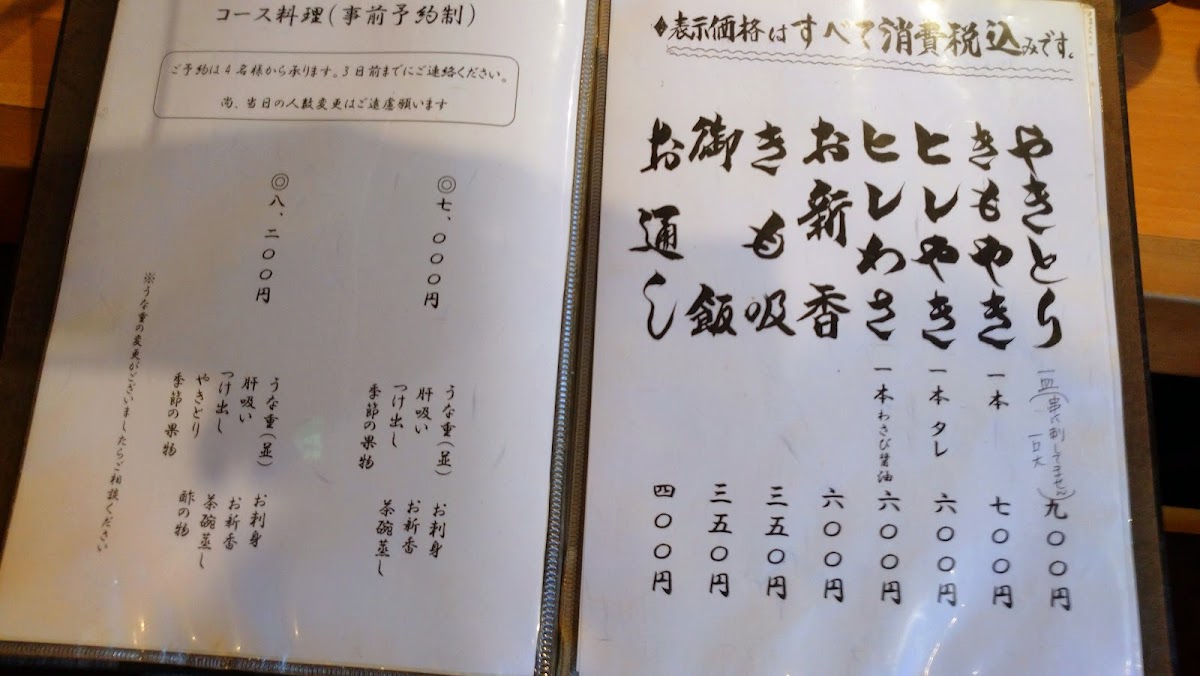 コース料理(事前予約制)
ご予約は4名様から承ります。3日前までにご連絡ください。
尚、当日の人数変更はご遠慮願います
◎七、〇〇〇円
うな重(並)
肝吸い
つけ出し
季節の果物
お刺身
お新香
茶碗蒸し
◎八、二〇〇円
うな重(並)
肝吸い
つけ出し
やきどり
季節の果物
お刺身
お新香
茶碗蒸し
酢の物
※うな重の変更がございましたらご相談ください
◆表示価格はすべて消費税込みです。
やきとり 一皿(串に刺してません) 一口大 九〇〇円
きもやき 一本 七〇〇円
ヒレやき 一本 タレ 六〇〇円
ヒレわさ 一本 わさび醤油 六〇〇円
お新香 六〇〇円
きも吸 三五〇円
御飯 三五〇円
お通し 四〇〇円